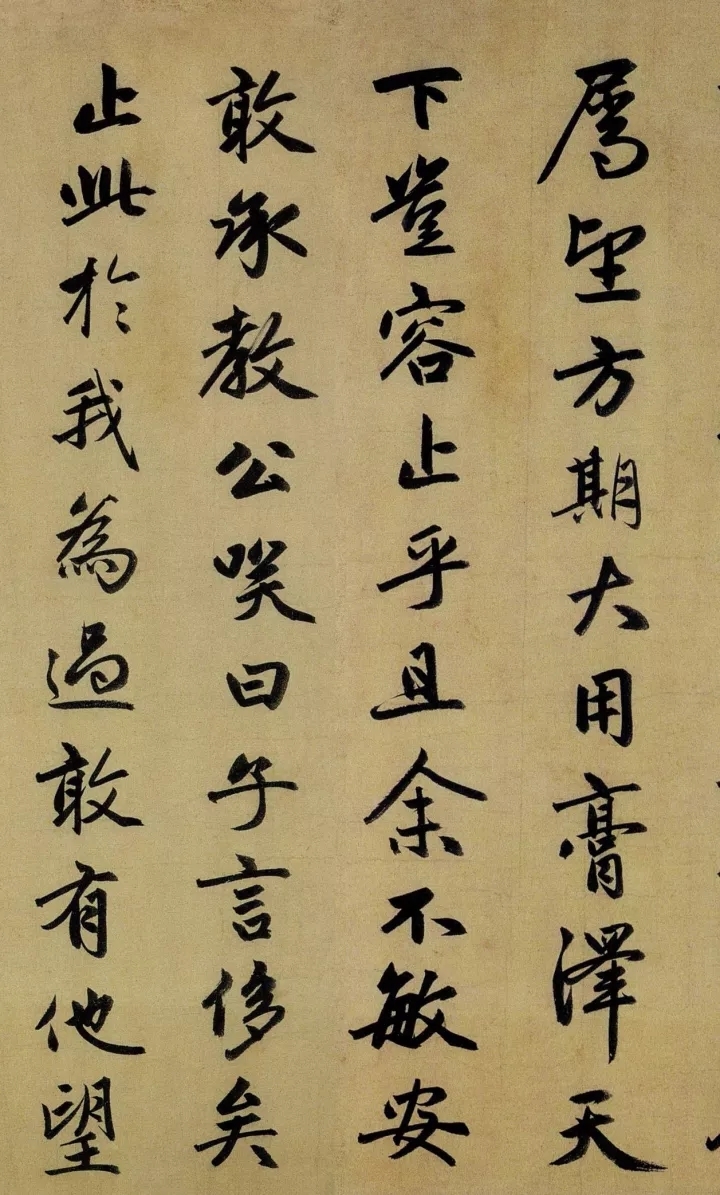 属望方期大用膏澤天
下豈容止乎且余不敏安
敢承教公笑曰子言侈矣
止此於我為過敢有他望